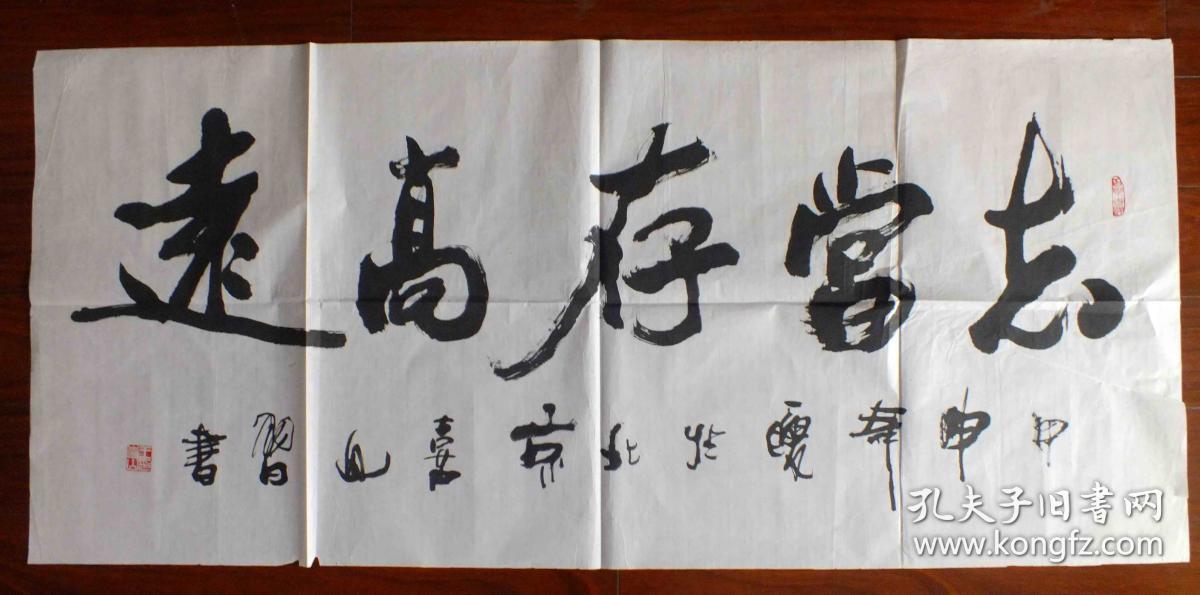 志當存高遠
甲申年夏於北京喜山習書
孔夫子旧书网
www.kongfz.com